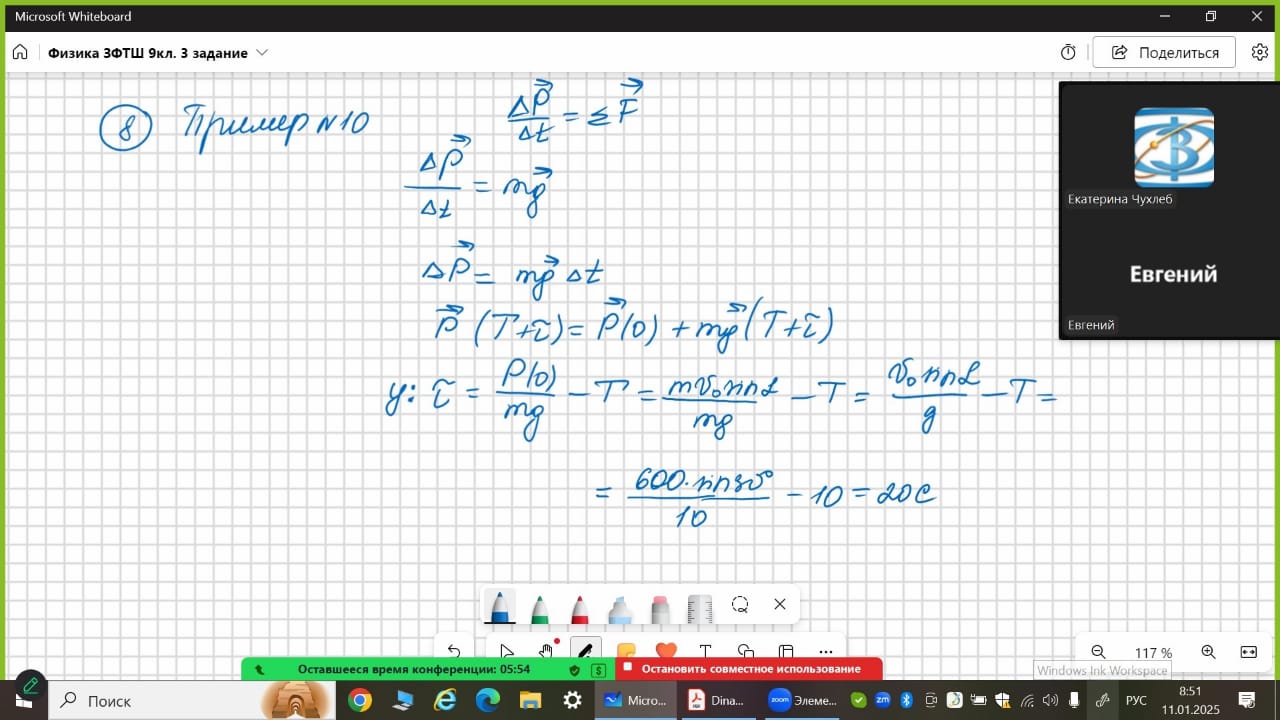 Microsoft Whiteboard
Физика ЗФТШ 9кл. 3 задание
Поделиться
8 Пример N10
ΔP⃗/Δt = ΣF⃗
ΔP⃗/Δt = mg⃗
ΔP⃗ = mg⃗ Δt
P⃗ (T+τ) = P⃗(0) + mg⃗(T+τ)
y: τ = P(0)/mg - T = mv₀sinα/mg - T = v₀sinα/g - T =
= 600·sin30°/10 - 10 = 20с
Екатерина Чухлеб
Евгений
Евгений
117 %
Windows Ink Workspace
Оставшееся время конференции: 05:54
Остановить совместное использование
Поиск
Micro...
Dina...
Элеме...
РУС
8:51
11.01.2025